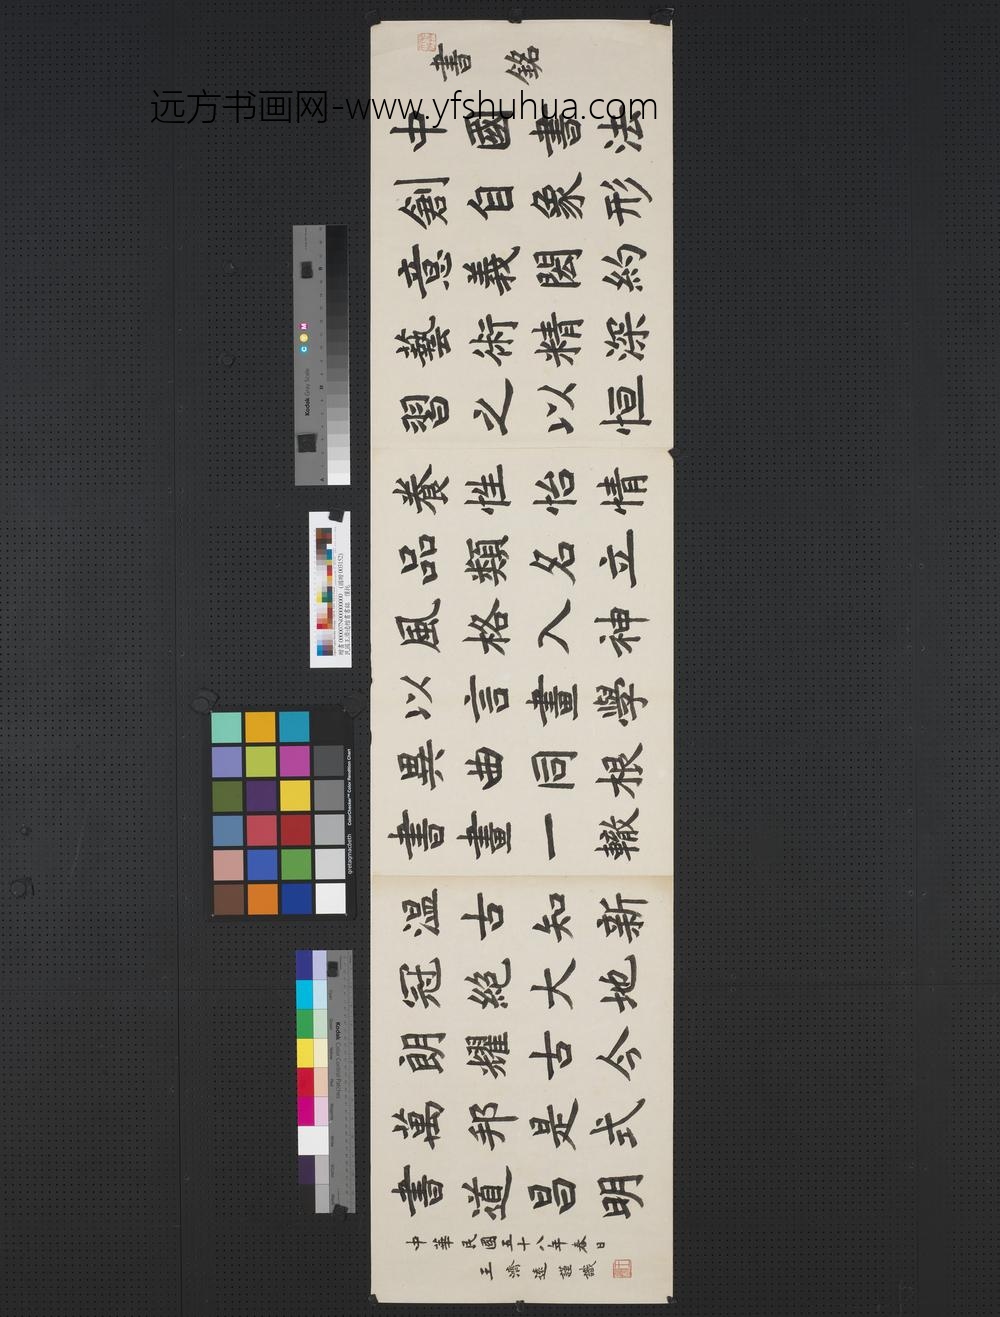 远方书画网-www.yfshuhua.com
書銘
中國書法
創自象形
意義閎約
藝術精深
習之以恒
養性怡情
品類名立
風格入神
以言畫學
異曲同根
書畫一轍
溫古知新
冠絕大地
朗耀古今
萬邦是式
書道昌明
中華民國五十八年春日
王濟遠謹識
Kodak Gray Scale
C Y M
ColorChecker™ Color Rendition Chart
gretagmacbeth
Kodak Color Control Patches